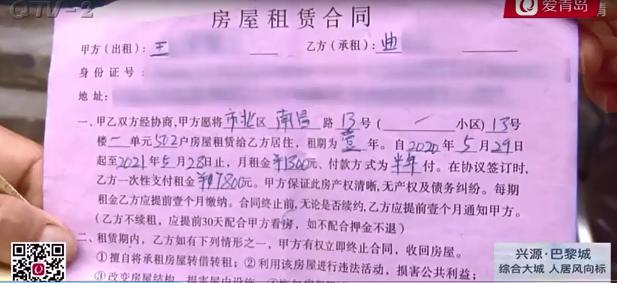 QTV-2
爱青岛
房屋租赁合同
甲方（出租）：王 乙方（承租）：曲
身份证号
地址：
一、甲乙双方经协商，甲方愿将市北区南昌路13号（一小区）13号
楼一单元502户房屋租赁给乙方居住，租期为壹年。自2020年5月29日
起至2021年5月28日止，月租金¥1300元、付款方式为半年付。在协议签订时，
乙方一次性支付租金¥7800元。甲方保证此房产权清晰，无产权及债务纠纷。每期
租金乙方应提前壹个月缴纳。合同终止前，无论是否续约，乙方应提前壹个月通知甲方。
（乙方不续租，应提前30天配合甲方看房，如不配合押金不退）
二、租赁期内，乙方如有下列情形之一，甲方有权立即终止合同，收回房屋。
①擅自将承租房屋转借转租；②利用该房屋进行违法活动，损害公共利益；
③改变房屋结构
兴源·巴黎城
综合大城 人居风向标